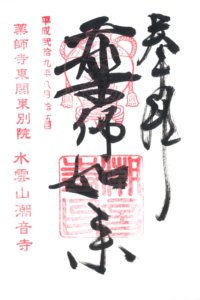 奉拝
薬師如来
平成弐拾九年八月拾五日
薬師寺東関東別院 水雲山潮音寺